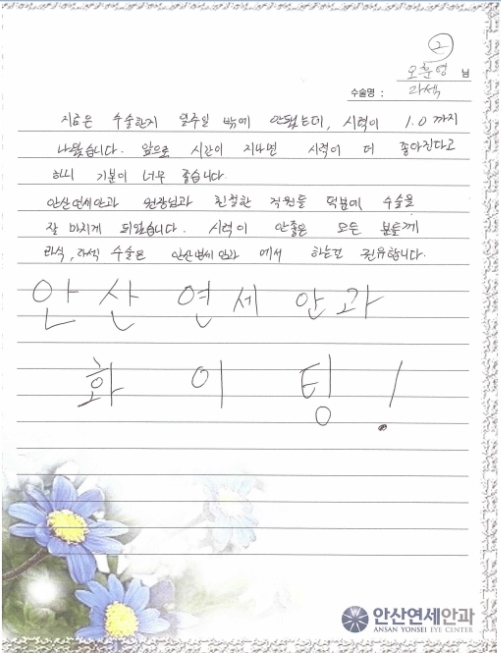 2
오훈영 님
수술명 : 라섹
지금은 수술한지 일주일 밖에 안됐는데, 시력이 1.0 까지
나왔습니다. 앞으로 시간이 지나면 시력이 더 좋아진다고
하니 기분이 너무 좋습니다.
안산연세안과 원장님과 친절한 직원들 덕분에 수술을
잘 마치게 되었습니다. 시력이 안좋은 모든 분들께
라식, 라섹 수술은 안산연세안과 에서 하는걸 권유합니다.
안산 연세 안과
화 이 팅!
안산연세안과
ANSAN YONSEI EYE CENTER